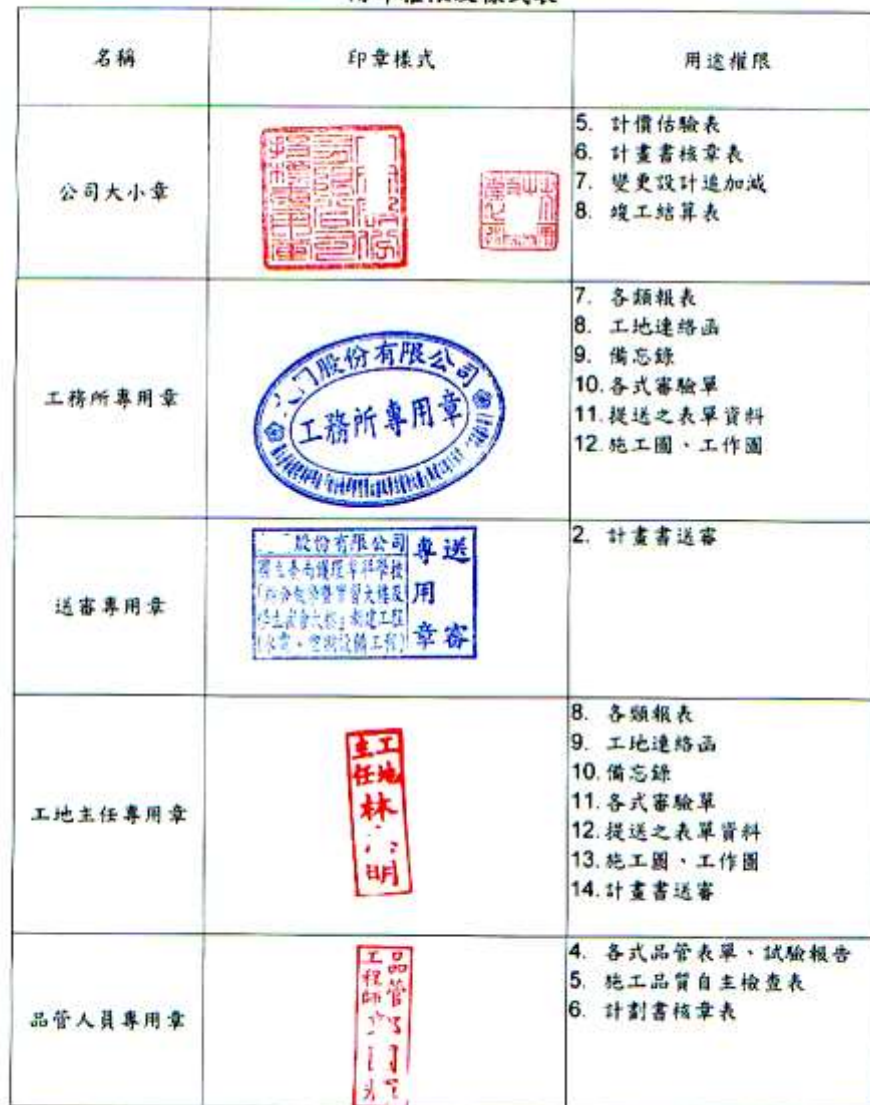 名稱 印章樣式 用途權限
公司大小章
5. 計價估驗表
6. 計畫書核章表
7. 變更設計追加減
8. 竣工結算表
工務所專用章
股份有限公司
工務所專用章
7. 各類報表
8. 工地連絡函
9. 備忘錄
10. 各式審驗單
11. 提送之表單資料
12. 施工圖、工作圖
送審專用章
股份有限公司
送審
專用章
2. 計畫書送審
工地主任專用章
工地
主任
林
明
8. 各類報表
9. 工地連絡函
10. 備忘錄
11. 各式審驗單
12. 提送之表單資料
13. 施工圖、工作圖
14. 計畫書送審
品管人員專用章
品管
工程師
4. 各式品管表單、試驗報告
5. 施工品質自主檢查表
6. 計劃書核章表